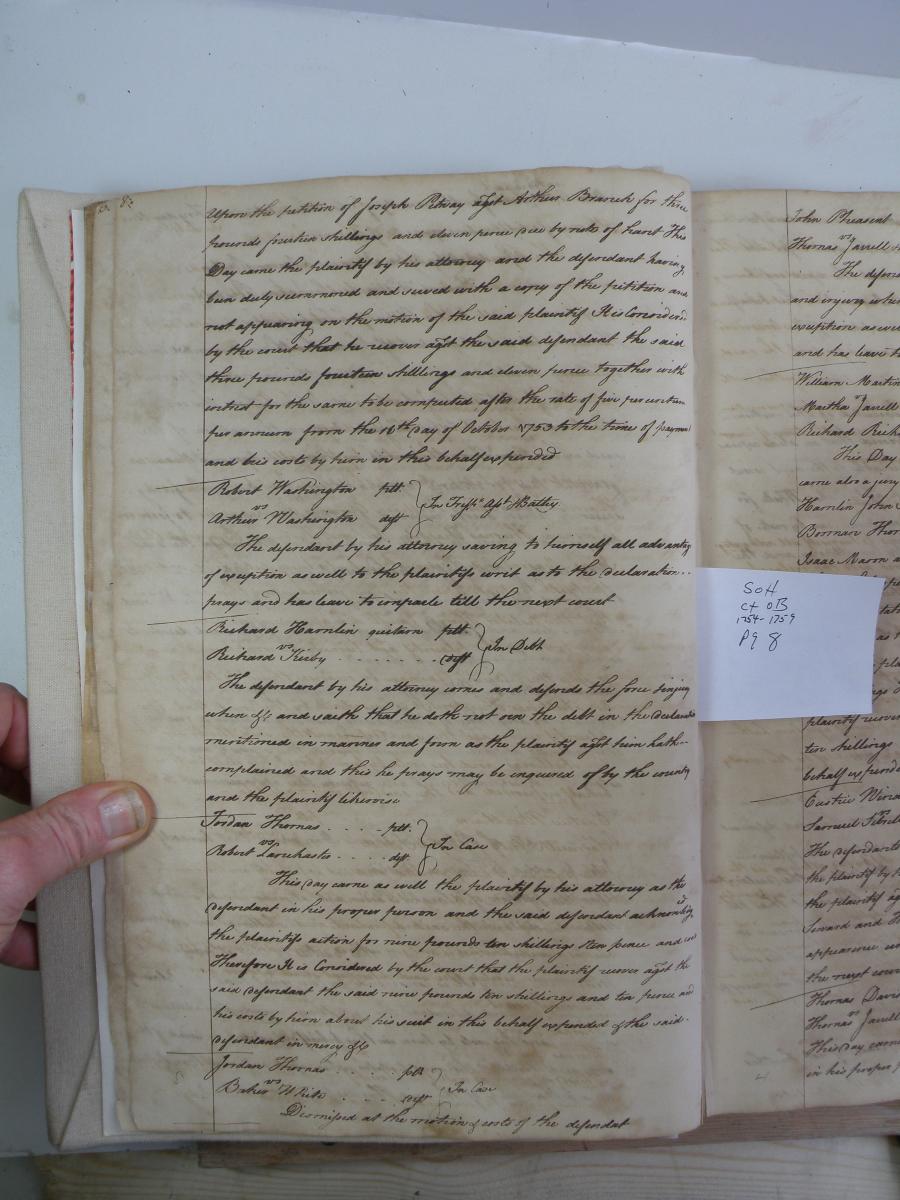 82
Upon the petition of Joseph Petway agst Arthur Branch for three
pounds fourteen shillings and eleven pence due by note of hand This
Day came the plaintif by his attorney and the defendant having
been duly summoned and served with a copy of the petition and
not appearing on the motion of the said plaintif It is Considered
by the court that he recover agst the said defendant the said
three pounds fourteen shillings and eleven pence together with
intrest for the same to be computed after the rate of five per centum
per annum from the 16th Day of October 1753 to the time of payment
and his costs by him in this behalf expended
Robert Washington plt.
vs
Arthur Washington deft
In Tresps Aslt & Battry
The defendant by his attorney saving to himself all advantag
of exception as well to the plaintifs writ as to the declaration..
prays and has leave to imparle till the next court
Richard Hamlin quitam plt.
vs
Richard Kirby . . . . . . . deft
In Debt
The defendant by his attorney comes and defends the force & injury
when &c and saith that he doth not owe the debt in the declaration
mentioned in manner and form as the plaintif agst him hath..
complained and this he prays may be inquered of by the county
and the plaintif likewise
Jordan Thomas . . . . plt.
vs
Robert Lanchaster . . . . deft
In Case
This day came as well the plaintif by his attorney as the
defendant in his proper person and the said defendant acknowledg
the plaintifs action for nine pounds ten shillings & ten pence and
Therefore It is Considered by the court that the plaintif recover agst the
said defendant the said nine pounds ten shillings and ten pence and
his costs by him about his suit in this behalf expended & the said.
defendant in mercy &c
Jordan Thomas . . . . plt
vs
White . . . . deft
In Case
Dismissed at the motion & costs of the defendat
SoH
Ct OB
1754-1759
Pg 8
John Pleasent
vs
Thomas Jarrell
The defend
and injury when
exception as we
and has leave t
William Martin
vs
Martha Jarrell
Richard Rick
This Day
came also a jury
Hamlin John
Borman Thom
Isaac Mason a
plaintif recover
ten shillings
behalf expende
vs
Samuel
The defendants
the plaintif by h
the plaintif ag
Seward and
appearance
the next cour
Thomas Davi
vs
Thomas Jarrell
This day came
in his proper p